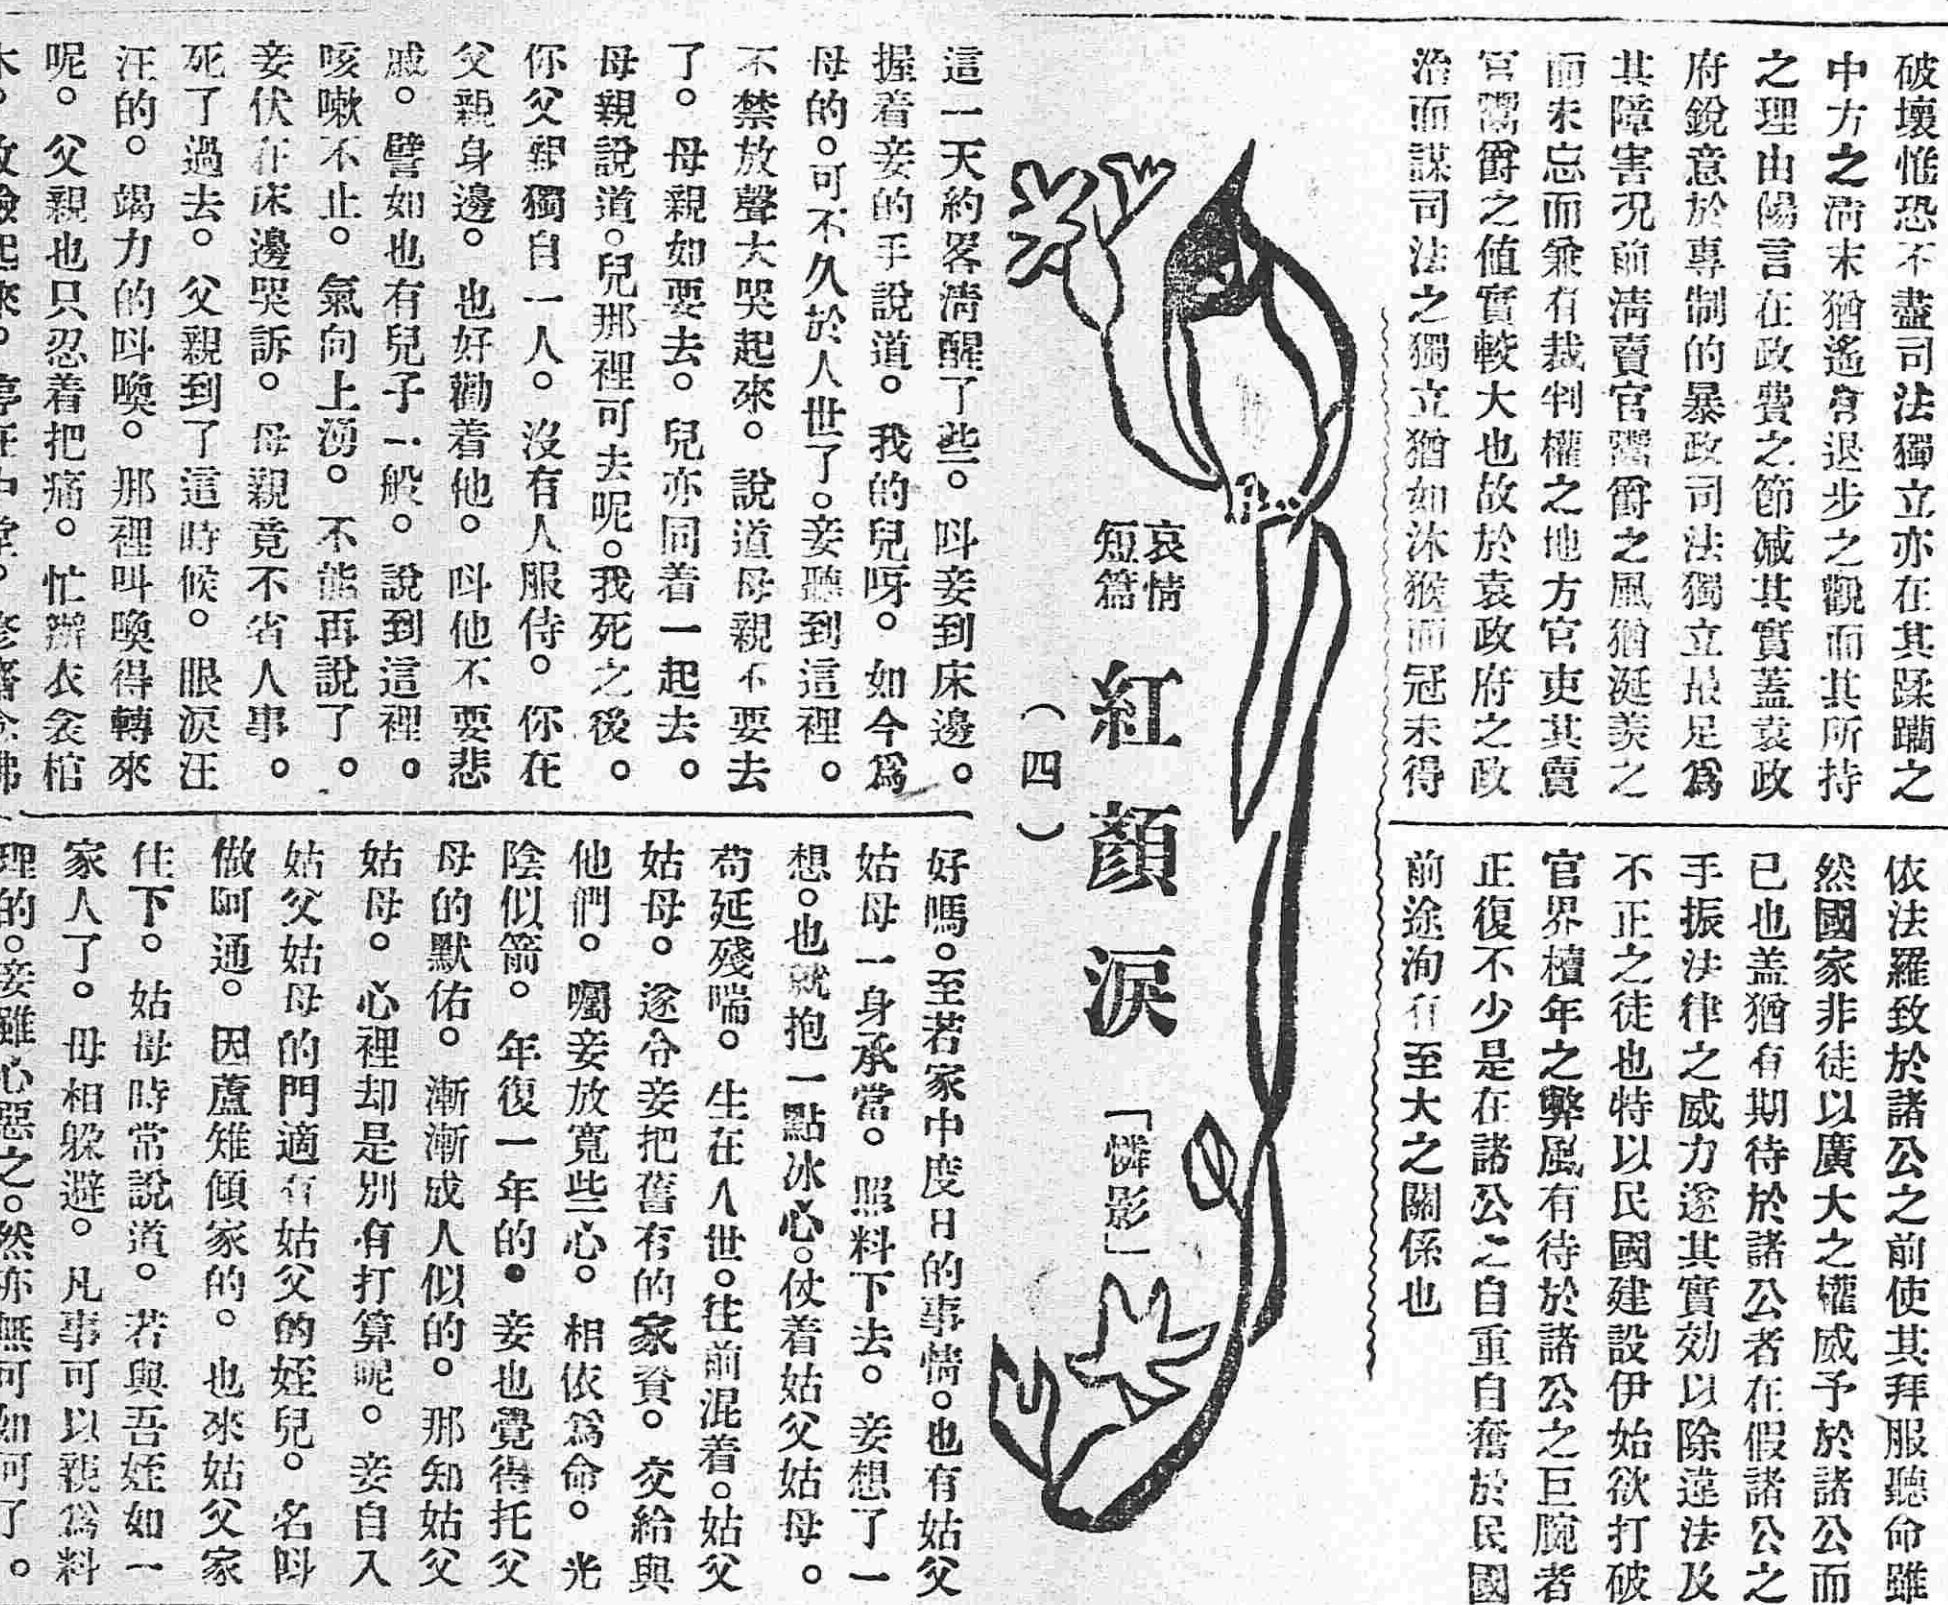 破壞惟恐不盡司法獨立亦在其蹂躪之
中方之淸末猶遙有退步之觀而其所持
之理由陽言在政費之節减其實蓋袁政
府銳意於專制的暴政司法獨立最足爲
其障害况前淸賣官鬻爵之風猶涎羡之
而未忘而兼有裁判權之地方官吏其賣
官鬻爵之値實較大也故於袁政府之政
治而謀司法之獨立猶如沐猴而冠未得
依法羅致於諸公之前使其拜服聽命雖
然國家非徒以廣大之權威予於諸公而
已也盖猶有期待於諸公者在假諸公之
手振法律之威力遂其實効以除違法及
不正之徒也特以民國建設伊始欲打破
官界積年之弊風有待於諸公之巨腕者
正復不少是在諸公之自重自奮於民國
前途洵有至大之關係也
哀情
短篇
紅顏淚
「憐影」
（四）
這一天約畧淸醒了些。叫妾到床邊。
握着妾的手說道。我的兒呀。如今爲
母的。可不久於人世了。妾聽到這裡。
不禁放聲大哭起來。說道母親不要去
了。母親如要去。兒亦同着一起去。
母親說道。兒那裡可去呢。我死之後。
你父親獨自一人。沒有人服侍。你在
父親身邊。也好勸着他。叫他不要悲
戚。譬如也有兒子一般。說到這裡。
咳嗽不止。氣向上湧。不能再說了。
妾伏在床邊哭訴。母親竟不省人事。
死了過去。父親到了這時候。眼淚汪
汪的。竭力的叫喚。那裡叫喚得轉來
呢。父親也只忍着把痛。忙辦衣衾棺
木。收殮起來。停在中堂。
好嗎。至若家中度日的事情。也有姑父
姑母一身承當。照料下去。妾想了一
想。也就抱一點冰心。仗着姑父姑母。
苟延殘喘。生在人世。往前混着。姑父
姑母。遂令妾把舊有的家資。交給與
他們。囑妾放寬些心。相依爲命。光
陰似箭。年復一年的。妾也覺得托父
母的默佑。漸漸成人似的。那知姑父
姑母。心裡却是別有打算呢。妾自入
姑父姑母的門適有姑父的姪兒。名叫
做阿通。因蘆雉傾家的。也來姑父家
住下。姑母時常說道。若與吾姪如一
家人了。毋相躲避。凡事可以親爲料
理的。妾雖心惡之。然亦無可如何了。